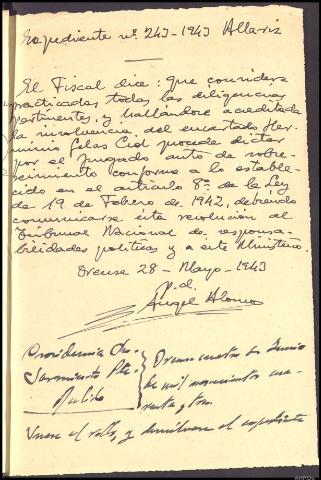 Expediente nº 243-1943 Allariz
El Fiscal dice: que considera
practicadas todas las diligencias
pertinentes, y hallándose acreditada
la insolvencia del encartado Her-
minio Celas Cid procede dictar
por el Juzgado auto de sobre-
seimiento conforme a lo estable-
cido en el artículo 8º de la Ley
de 19 de Febrero de 1942, debiendo
comunicarse esta resolución al
Tribunal Nacional de responsa-
bilidades políticas y a este Ministerio.
Orense 28 - Mayo - 1943
p.d.
Angel Alonso
Providencia
Sarmiento
Pulido
Orense cuatro de Junio
de mil novecientos cua-
renta y tres.
Unase el rollo, y devuélvase el expediente